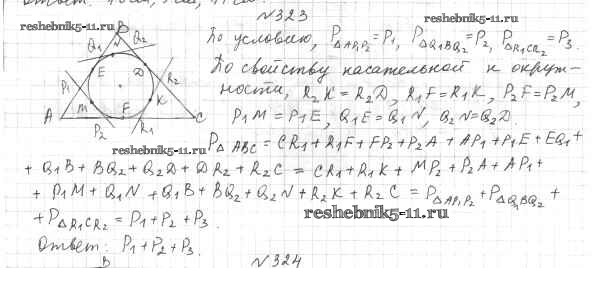 N323
reshebnik5-11.ru
reshebnik5-11.ru
По условию, P△AP₁P₂ = P₁, P△Q₁BQ₂ = P₂, P△R₁CR₂ = P₃.
По свойству касательной к окруж-
ности, R₂K = R₂D, R₁F = R₁K, P₂F = P₂M,
P₁M = P₁E, Q₁E = Q₁N, Q₂N = Q₂D.
B
Q₁ N Q₂
E D R₂
P₁
M K
A F C
P₂ R₁
P△ABC = CR₁ + R₁F + FP₂ + P₂A + AP₁ + P₁E + EQ₁ +
+ Q₁B + BQ₂ + Q₂D + DR₂ + R₂C = CR₁ + R₁K + MP₂ + P₂A + AP₁ +
+ P₁M + Q₁N + Q₁B + BQ₂ + Q₂N + R₂K + R₂C = P△AP₁P₂ + P△Q₁BQ₂ +
+ P△R₁CR₂ = P₁ + P₂ + P₃.
reshebnik5-11.ru
Ответ: P₁ + P₂ + P₃.
B
N324